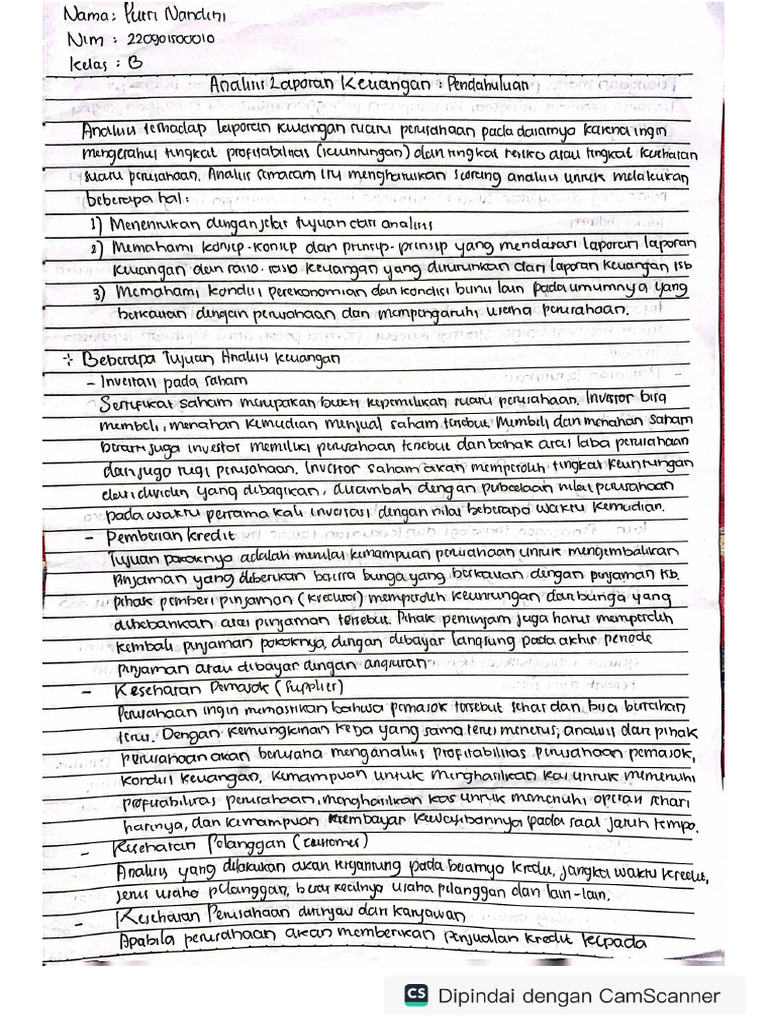 Nama : Putri Nandini
Nim : 220901500010
Kelas : B
Analisis Laporan Keuangan : Pendahuluan
Analisis terhadap laporan keuangan suatu perusahaan pada dasarnya karena ingin
mengetahui tingkat profitabilitas (keuntungan) dan tingkat resiko atau tingkat kesehatan
suatu perusahaan. Analisis semacam itu mengharuskan seorang analisis untuk melakukan
beberapa hal :
1) Menentukan dengan jelas tujuan dari analisis
2) Memahami konsep-konsep dan prinsip-prinsip yang mendasari laporan laporan
keuangan dan rasio-rasio keuangan yang diturunkan dari laporan keuangan tsb
3) Memahami kondisi perekonomian dan kondisi bisnis lain pada umumnya yang
berkaitan dengan perusahaan dan mempengaruhi usaha perusahaan.
Beberapa Tujuan Analisis Keuangan
- Investasi pada saham
Sertifikat saham merupakan bukti kepemilikan suatu perusahaan. Investor bisa
membeli, menahan kemudian menjual saham tersebut. Membeli dan menahan saham
berarti juga investor memiliki perusahaan tersebut dan berhak atas laba perusahaan
dan jugo rugi perusahaan. Investor saham akan memperoleh tingkat keuntungan
dari dividen yang dibagikan, ditambah dengan perbedaan nilai perusahaan
pada waktu pertama kali investasi dengan nilai beberapa waktu kemudian.
- Pemberian kredit
Tujuan pokoknya adalah menilai kemampuan perusahaan untuk mengembalikan
pinjaman yang diberikan beserta bunga yang berkaitan dengan pinjaman tsb.
Pihak pemberi pinjaman (kreditor) memperoleh keuntungan dari bunga yang
dibebankan atas pinjaman tersebut. Pihak peminjam juga harus memperoleh
kembali pinjaman pokoknya, dengan dibayar langsung pada akhir periode
pinjaman atau dibayar dengan angsuran
- Kesehatan Pemasok (Supplier)
Perusahaan ingin memastikan bahwa pemasok tersebut sehat dan bisa bertahan
terus. Dengan kemungkinan kerja yang sama terus menerus, analisis dari pihak
perusahaan akan berusaha menganalisis profitabilitas perusahaan pemasok,
kondisi keuangan, kemampuan untuk menghasilkan kas untuk memenuhi
profitabilitas perusahaan, menghasilkan kas untuk memenuhi operasi sehari
harinya, dan kemampuan membayar kewajibannya pada saat jatuh tempo.
- Kesehatan Pelanggan (Customer)
Analisis yang dilakukan akan tergantung pada besarnya kredit, jangka waktu kredit,
jenis usaha pelanggan, besar kecilnya usaha pelanggan dan lain-lain.
- Kesehatan Perusahaan ditinjau dari karyawan
Apabila perusahaan akan memberikan penjualan kredit kepada
CS Dipindai dengan CamScanner